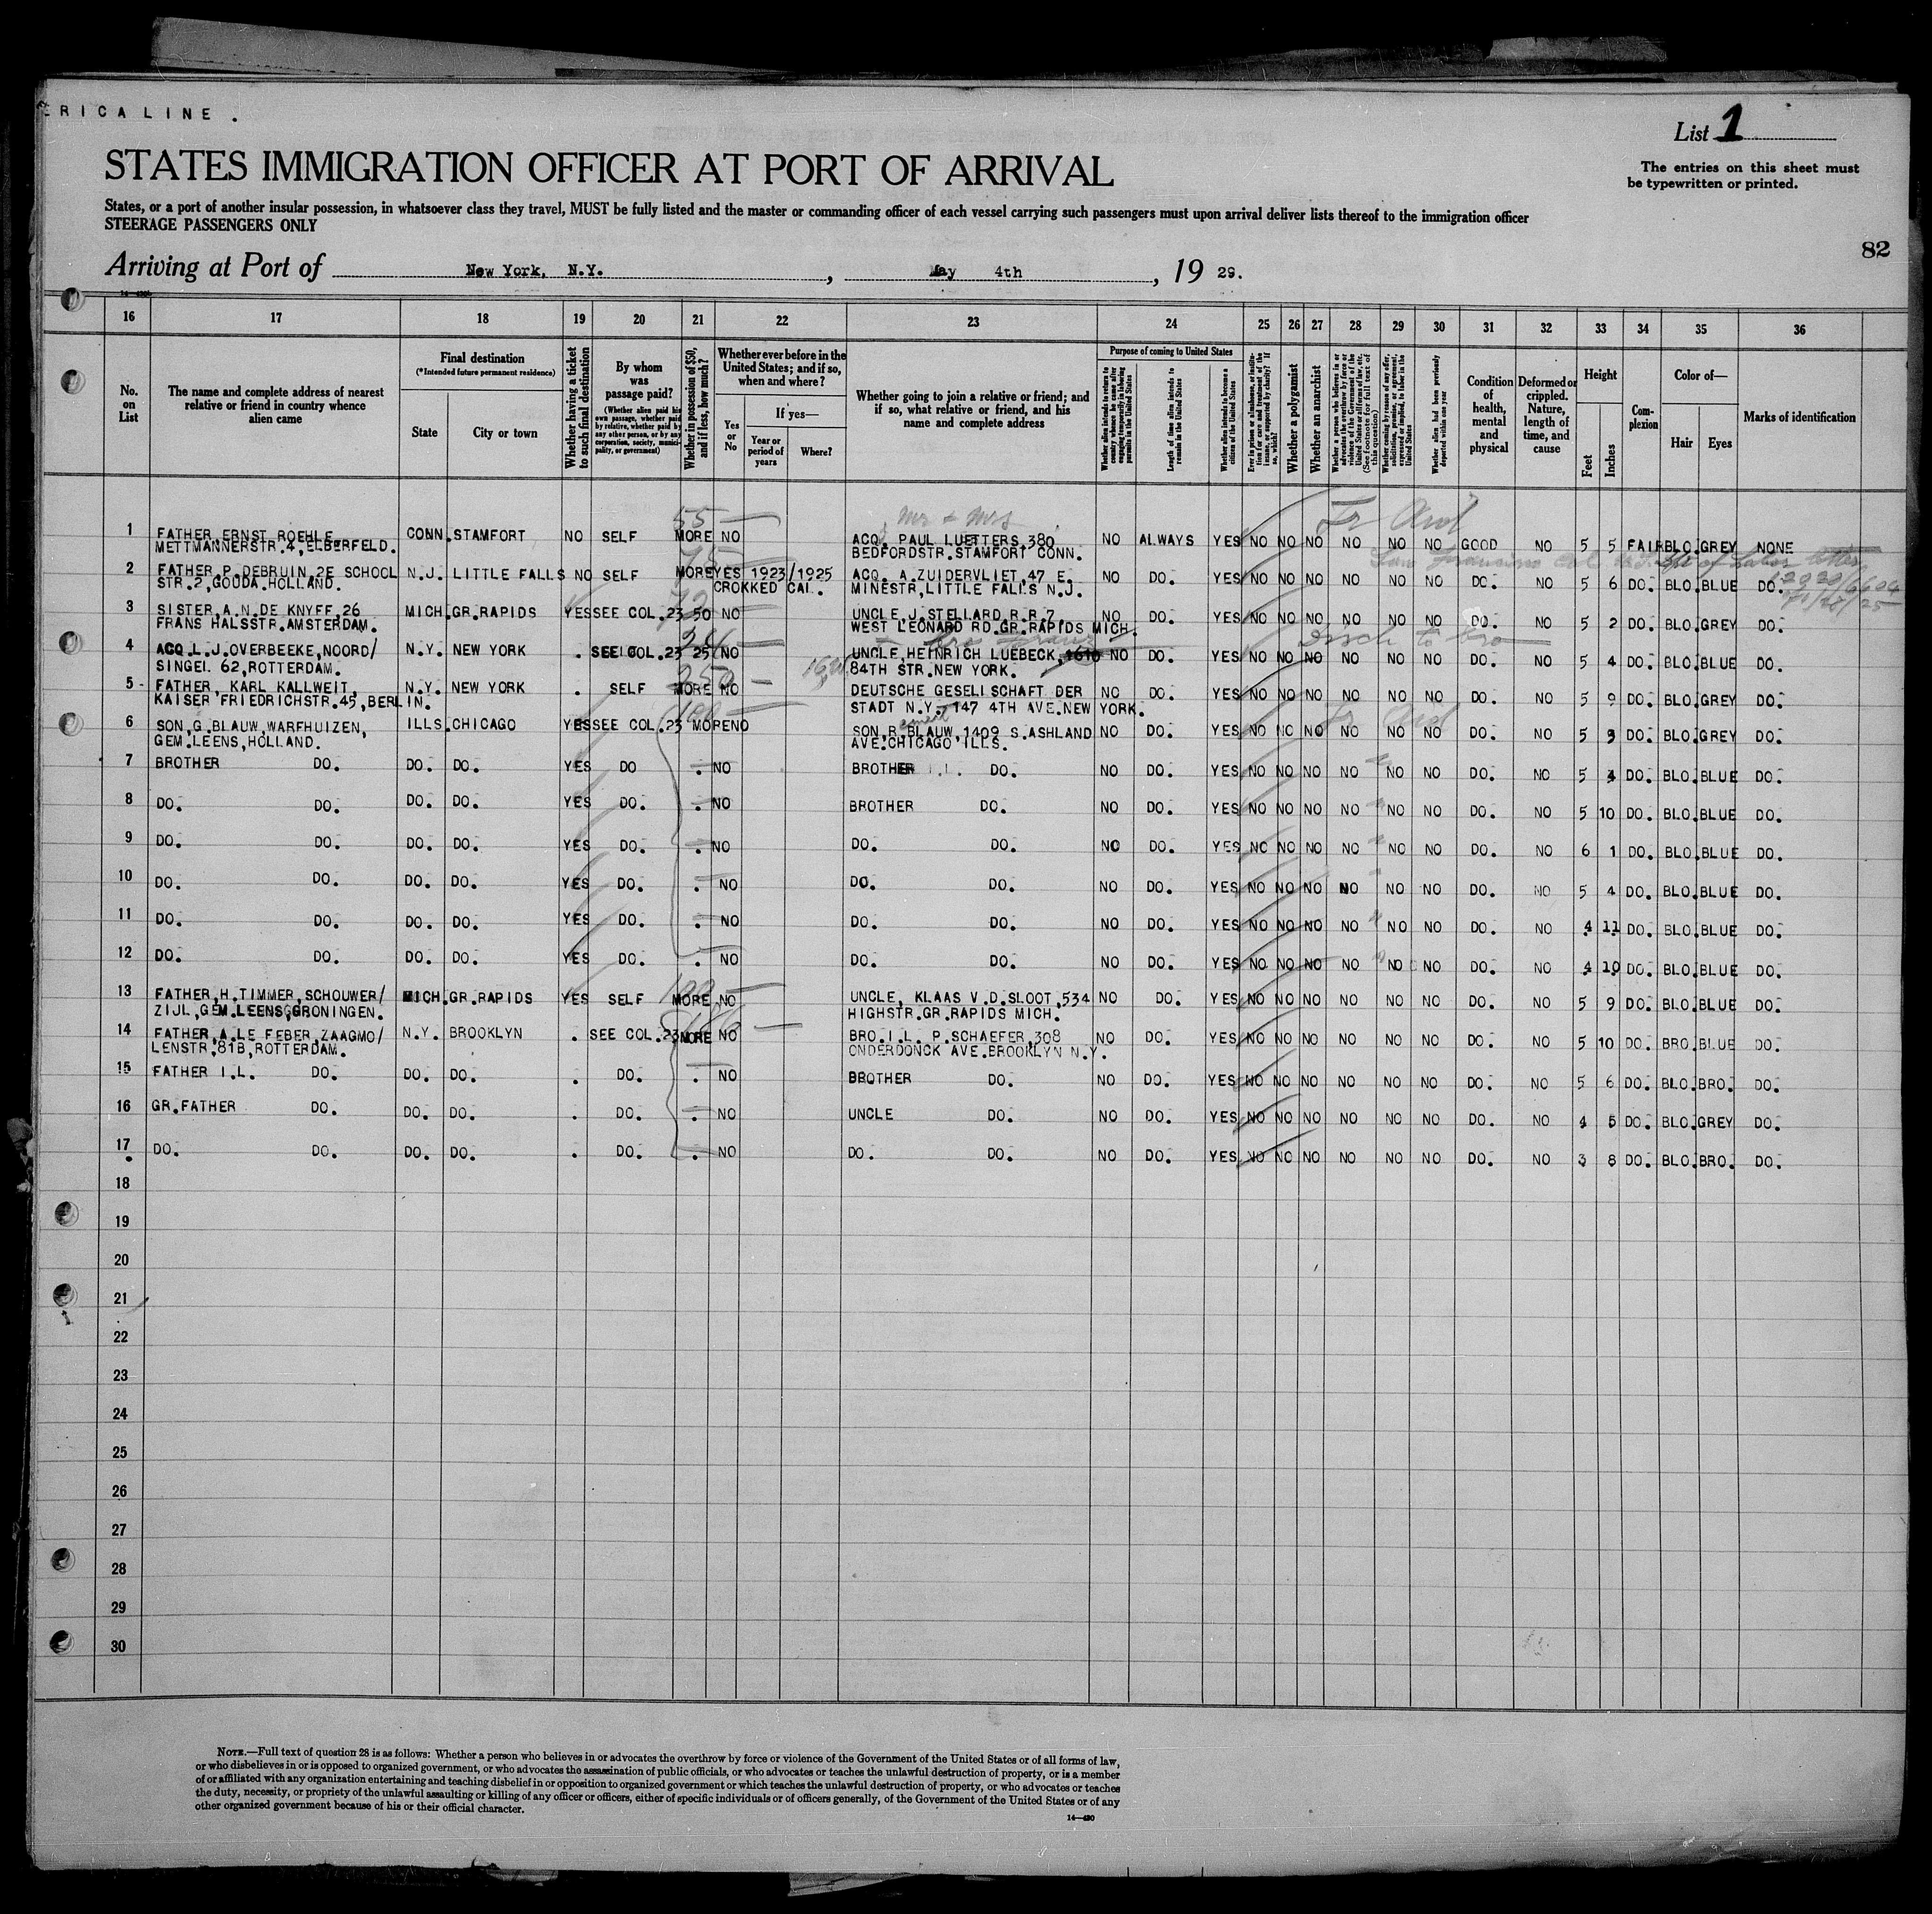 ERICA LINE .
List 1
STATES IMMIGRATION OFFICER AT PORT OF ARRIVAL
The entries on this sheet must
be typewritten or printed.
States, or a port of another insular possession, in whatsoever class they travel, MUST be fully listed and the master or commanding officer of each vessel carrying such passengers must upon arrival deliver lists thereof to the immigration officer
STEERAGE PASSENGERS ONLY
82
Arriving at Port of New York, N.Y. , May 4th , 19 29.
16 17 18 19 20 21 22 23 24 25 26 27 28 29 30 31 32 33 34 35 36
No. on List
The name and complete address of nearest relative or friend in country whence alien came
Final destination
(*Intended future permanent residence)
State
City or town
Whether having a ticket to such final destination
By whom was passage paid?
(Whether alien paid his own passage, whether paid by relative, whether paid by any other person, or by any corporation, society, municipality, or government)
Whether in possession of $50, and if less, how much?
Whether ever before in the United States; and if so, when and where?
Yes or No
If yes—
Year or period of years
Where?
Whether going to join a relative or friend; and if so, what relative or friend, and his name and complete address
Purpose of coming to United States
Whether alien intends to return to country whence he came after engaging temporarily in laboring pursuits in the United States
Length of time alien intends to remain in the United States
Whether alien intends to become a citizen of the United States
Ever in prison or almshouse, or institution for care and treatment of the insane, or supported by charity? If so, which?
Whether a polygamist
Whether an anarchist
(See footnote for full text of this question)
Whether coming by reason of any offer, solicitation, promise, or agreement, expressed or implied, to labor in the United States
Whether alien had been previously deported within one year
Condition of health, mental and physical
Deformed or crippled. Nature, length of time, and cause
Height
Feet
Inches
Complexion
Color of—
Hair
Eyes
Marks of identification
55 —
Mr + Mrs
1 FATHER, ERNST ROEHLE, CONN. STAMFORT NO SELF MORE NO ACQ. PAUL LUETTERS, 380 NO ALWAYS YES NO NO NO NO NO NO GOOD NO 5 5 FAIR BLO. GREY NONE
METTMANNERSTR.4, ELBERFELD. BEDFORDSTR. STAMFORT CONN.
2 FATHER P. DEBRUIN, 2E SCHOOL N.J. LITTLE FALLS NO SELF MORE YES 1923/1925 ACQ. A. ZUIDERVLIET, 47 E. NO DO. YES NO NO NO NO NO NO DO. NO 5 6 DO. BLO. BLUE DO.
STR.2, GOUDA. HOLLAND. CROKKED CAL. MINESTR, LITTLE FALLS N.J.
3 SISTER, A.N. DE KNYFF, 26 MICH. GR.RAPIDS YES SEE COL.23 50 NO UNCLE, J. STELLARD R.R 7, NO DO. YES NO NO NO NO NO NO DO. NO 5 2 DO. BLO. GREY DO.
FRANS HALSSTR. AMSTERDAM. WEST LEONARD RD. GR.RAPIDS MICH.
4 ACQ. L.J. OVERBEEKE, NOORD/ N.Y. NEW YORK . SEE COL.23 25 NO UNCLE, HEINRICH LUEBECK, 1610 NO DO. YES NO NO NO NO NO NO DO. NO 5 4 DO. BLO. BLUE DO.
SINGEL 62, ROTTERDAM. 84TH STR. NEW YORK.
5 - FATHER, KARL KALLWEIT, N.Y. NEW YORK . SELF MORE NO DEUTSCHE GESELLSCHAFT DER NO DO. YES NO NO NO NO NO NO DO. NO 5 9 DO. BLO. GREY DO.
KAISER FRIEDRICHSTR. 45, BERLIN. STADT N.Y. 147 4TH AVE. NEW YORK.
6 SON, G. BLAUW, WARFHUIZEN, ILLS. CHICAGO YES SEE COL.23 MORE NO SON, R. BLAUW, 1409 S. ASHLAND NO DO. YES NO NO NO NO NO NO DO. NO 5 3 DO. BLO. GREY DO.
GEM. LEENS, HOLLAND. AVE. CHICAGO ILLS.
7 BROTHER DO. DO. DO. YES DO . NO BROTHER I.L. DO. NO DO. YES NO NO NO NO NO NO DO. NO 5 4 DO. BLO. BLUE DO.
8 DO. DO. DO. DO. YES DO. . NO BROTHER DO. NO DO. YES NO NO NO NO NO NO DO. NO 5 10 DO. BLO. BLUE DO.
9 DO. DO. DO. DO. YES DO. . NO DO. DO. NO DO. YES NO NO NO NO NO NO DO. NO 6 1 DO. BLO. BLUE DO.
10 DO. DO. DO. DO. YES DO. . NO DO. DO. NO DO. YES NO NO NO NO NO NO DO. NO 5 4 DO. BLO. BLUE DO.
11 DO. DO. DO. DO. YES DO. . NO DO. DO. NO DO. YES NO NO NO NO NO NO DO. NO 4 11 DO. BLO. BLUE DO.
12 DO. DO. DO. DO. YES DO. . NO DO. DO. NO DO. YES NO NO NO NO NO NO DO. NO 4 10 DO. BLO. BLUE DO.
13 FATHER, H. TIMMER, SCHOUWER/ MICH. GR.RAPIDS YES SELF MORE NO UNCLE, KLAAS V.D. SLOOT, 534 NO DO. YES NO NO NO NO NO NO DO. NO 5 9 DO. BLO. BLUE DO.
ZIJL, GEM. LEENS, GRONINGEN. HIGHSTR. GR.RAPIDS MICH.
14 FATHER, A. LE FEBER, ZAAGMO/ N.Y. BROOKLYN . SEE COL.23 MORE NO BRO. I.L. P. SCHAEFER, 308 NO DO. YES NO NO NO NO NO NO DO. NO 5 10 DO. BRO. BLUE DO.
LENSTR, 81B, ROTTERDAM. ONDERDONCK AVE. BROOKLYN N.Y.
15 FATHER I.L. DO. DO. DO. . DO. . NO BROTHER DO. NO DO. YES NO NO NO NO NO NO DO. NO 5 6 DO. BLO. BRO. DO.
16 GR. FATHER DO. DO. DO. . DO. . NO UNCLE DO. NO DO. YES NO NO NO NO NO NO DO. NO 4 5 DO. BLO. GREY DO.
17 DO. DO. DO. DO. . DO. . NO DO. DO. NO DO. YES NO NO NO NO NO NO DO. NO 3 8 DO. BLO. BRO. DO.
18
19
20
21
22
23
24
25
26
27
28
29
30
NOTE.—Full text of question 28 is as follows: Whether a person who believes in or advocates the overthrow by force or violence of the Government of the United States or of all forms of law,
or who disbelieves in or is opposed to organized government, or who advocates the assassination of public officials, or who advocates or teaches the unlawful destruction of property, or is a member
of or affiliated with any organization entertaining and teaching disbelief in or opposition to organized government or which teaches the unlawful destruction of property, or who advocates or teaches
the duty, necessity, or propriety of the unlawful assaulting or killing of any officer or officers, either of specific individuals or of officers generally, of the Government of the United States or of any
other organized government because of his or their official character.
14—420